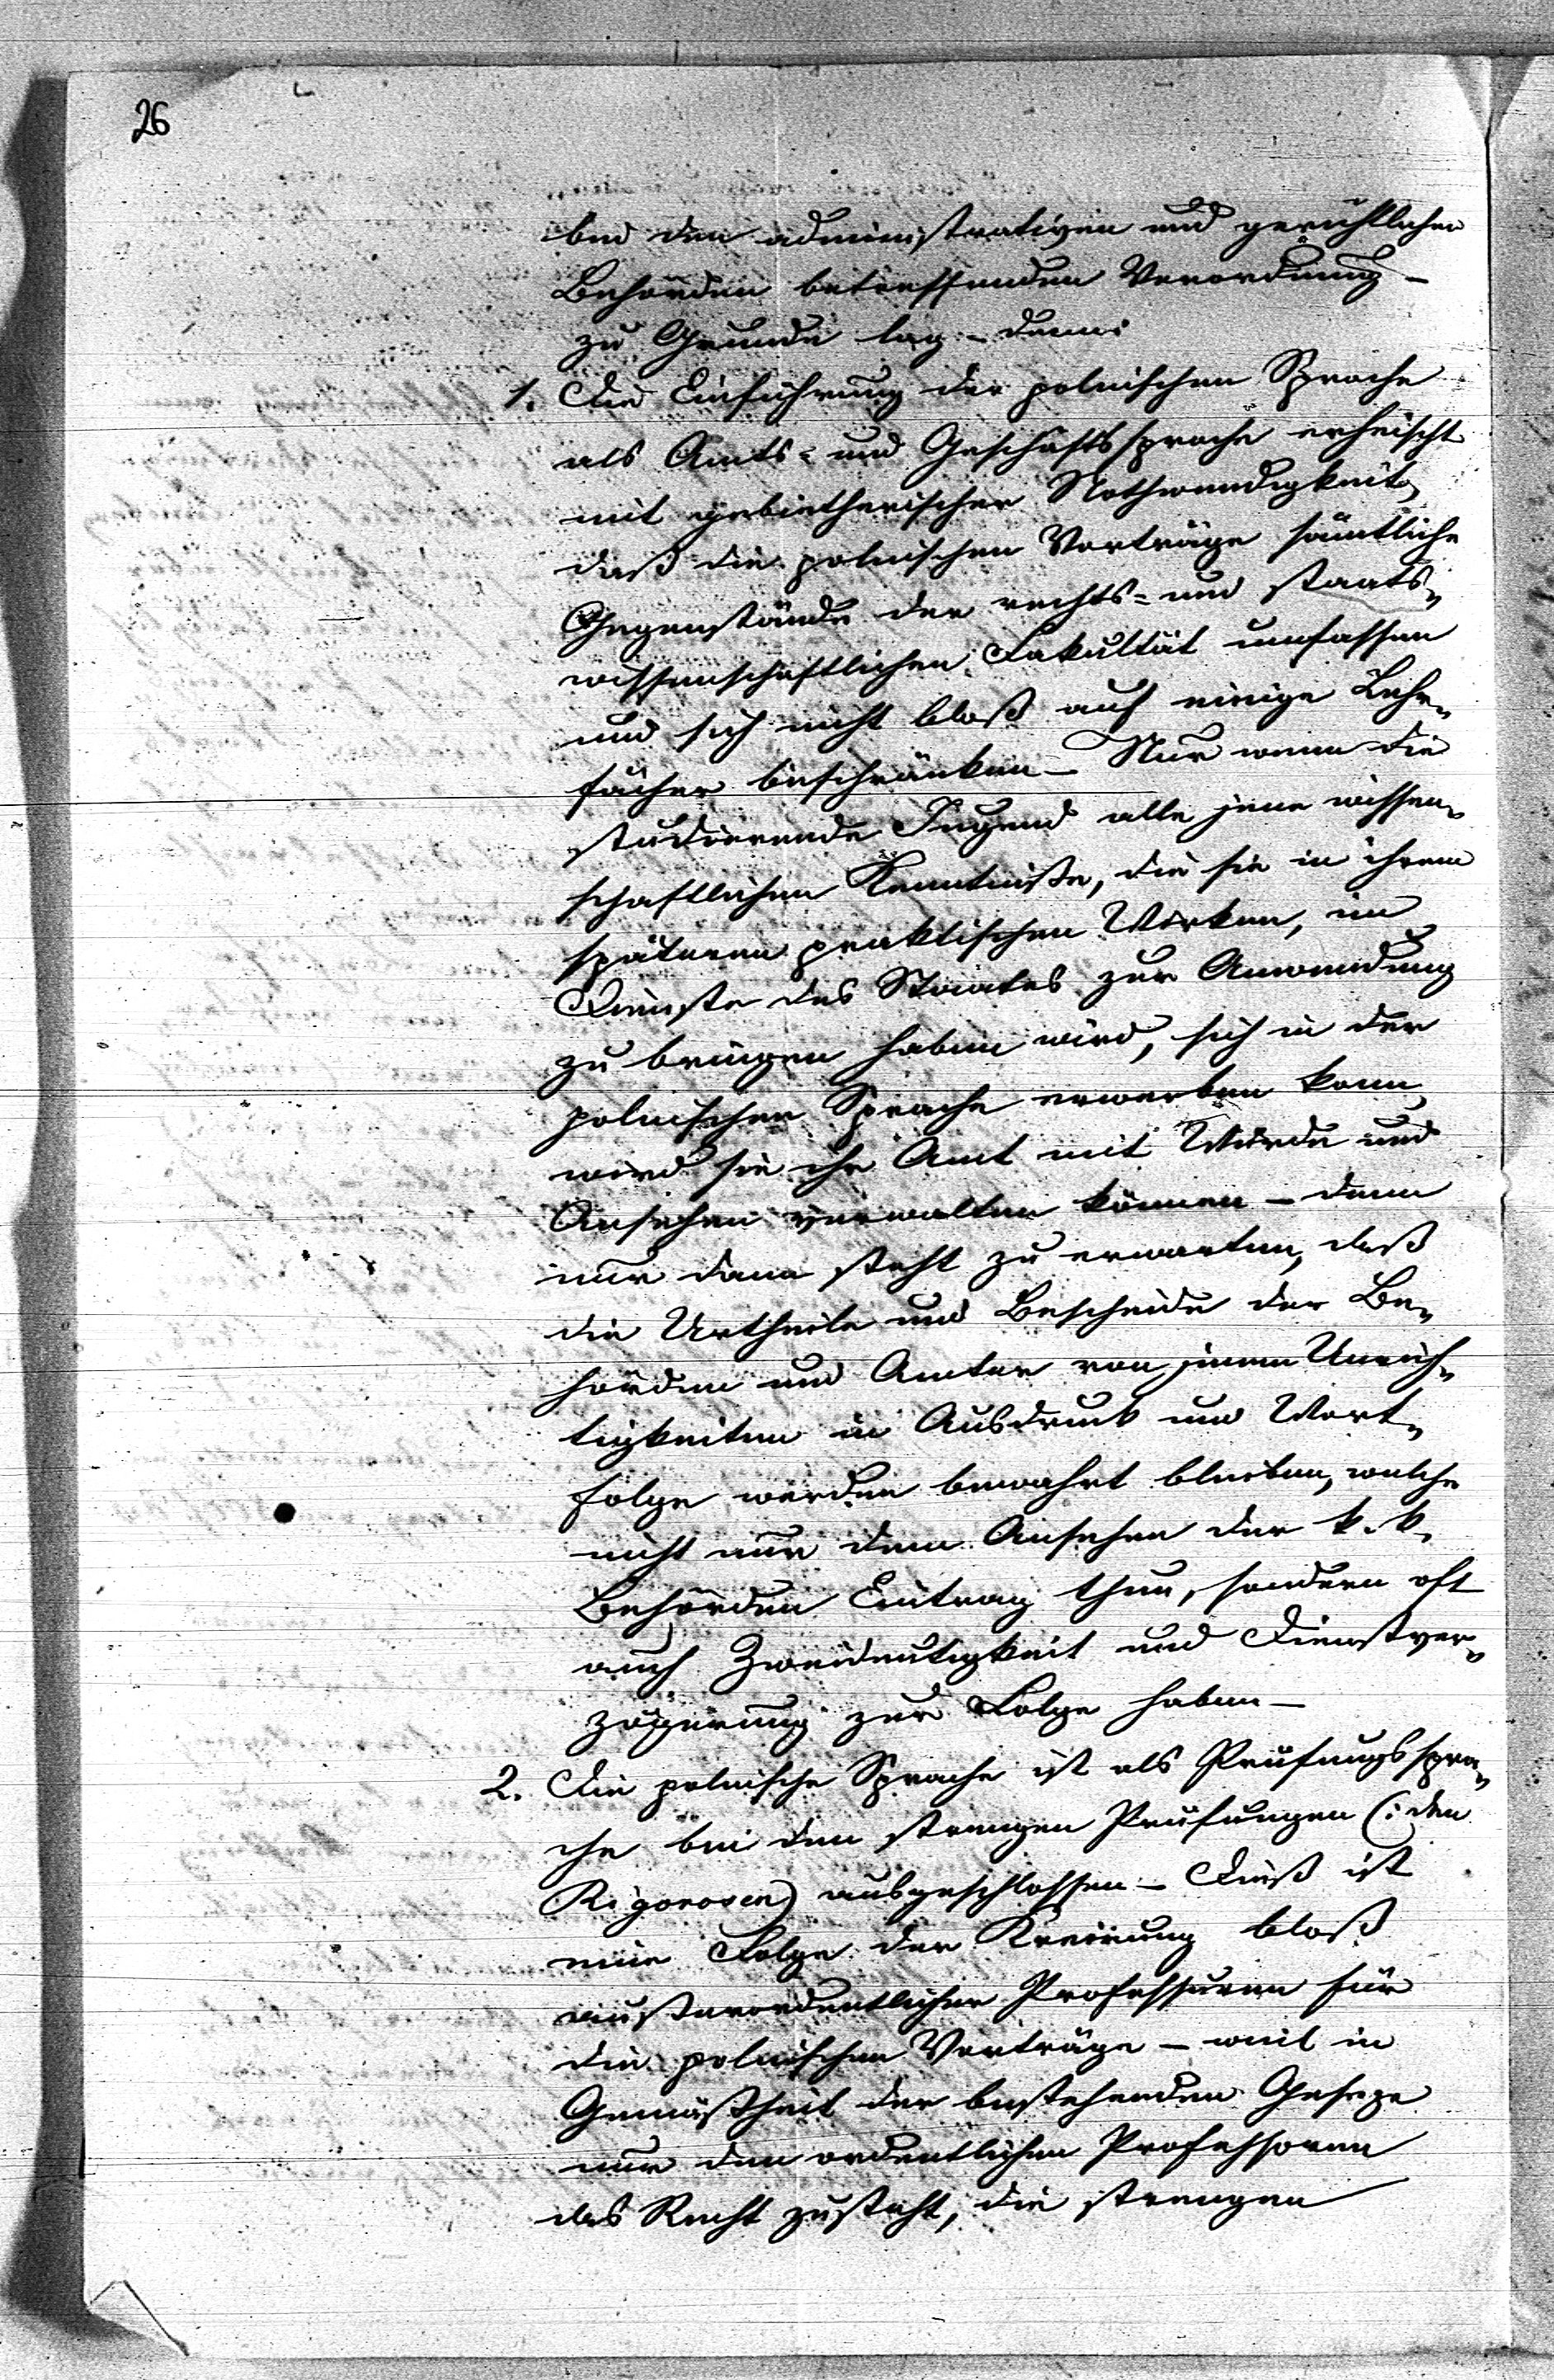 26
bei den administrativen und gerichtlichen
Behörden betreffenden Verordnung –
zu Grunde lag – denn:
1. Die Einführung der polnischen Sprache
als Amts- und Geschäftssprache erheischt
mit gebietherischer Nothwendigkeit,
daß die polnischen Vorträge säm̃tliche
Gegenstände der rechts- und staats-
wissenschaftlichen Fakultät umfassen
und sich nicht bloß auf einige Lehr-
fächer beschränken – Nur wenn die
studierende Jugend alle jene wissen-
schaftlichen Kenntniße, die sie in ihrem
späteren praktischen Wirken, im
Dienste des Staates zur Anwendung
zu bringen haben wird, sich in der
polnischen Sprache erwerben kann,
wird sie ihr Amt mit Würde und
Ansehen verwalten können – denn
nur dann steht zu erwarten, daß
die Urtheile und Bescheide der Be-
hörden und Ämter von jenen Unrich-
tigkeiten in Ausdruck und Wort-
folge werden bewahrt bleiben, welche
nicht nur dem Ansehen der k. k.
Behörden Eintrag thun, sondern oft
auch Zweideutigkeit und Dienstver-
zögerung zur Folge haben –
2. Die polnische Sprache ist als Prüfungsspra-
che bei den strengen Prüfungen (: den
Rigorosen) ausgeschlossen – Dieß ist
eine Folge der Kreirung bloß
außerordentlicher Professuren für
die polnischen Vorträge – weil in
Gemäßheit der bestehenden Geseze
nur den ordentlichen Professoren
das Recht zusteht, die strengen